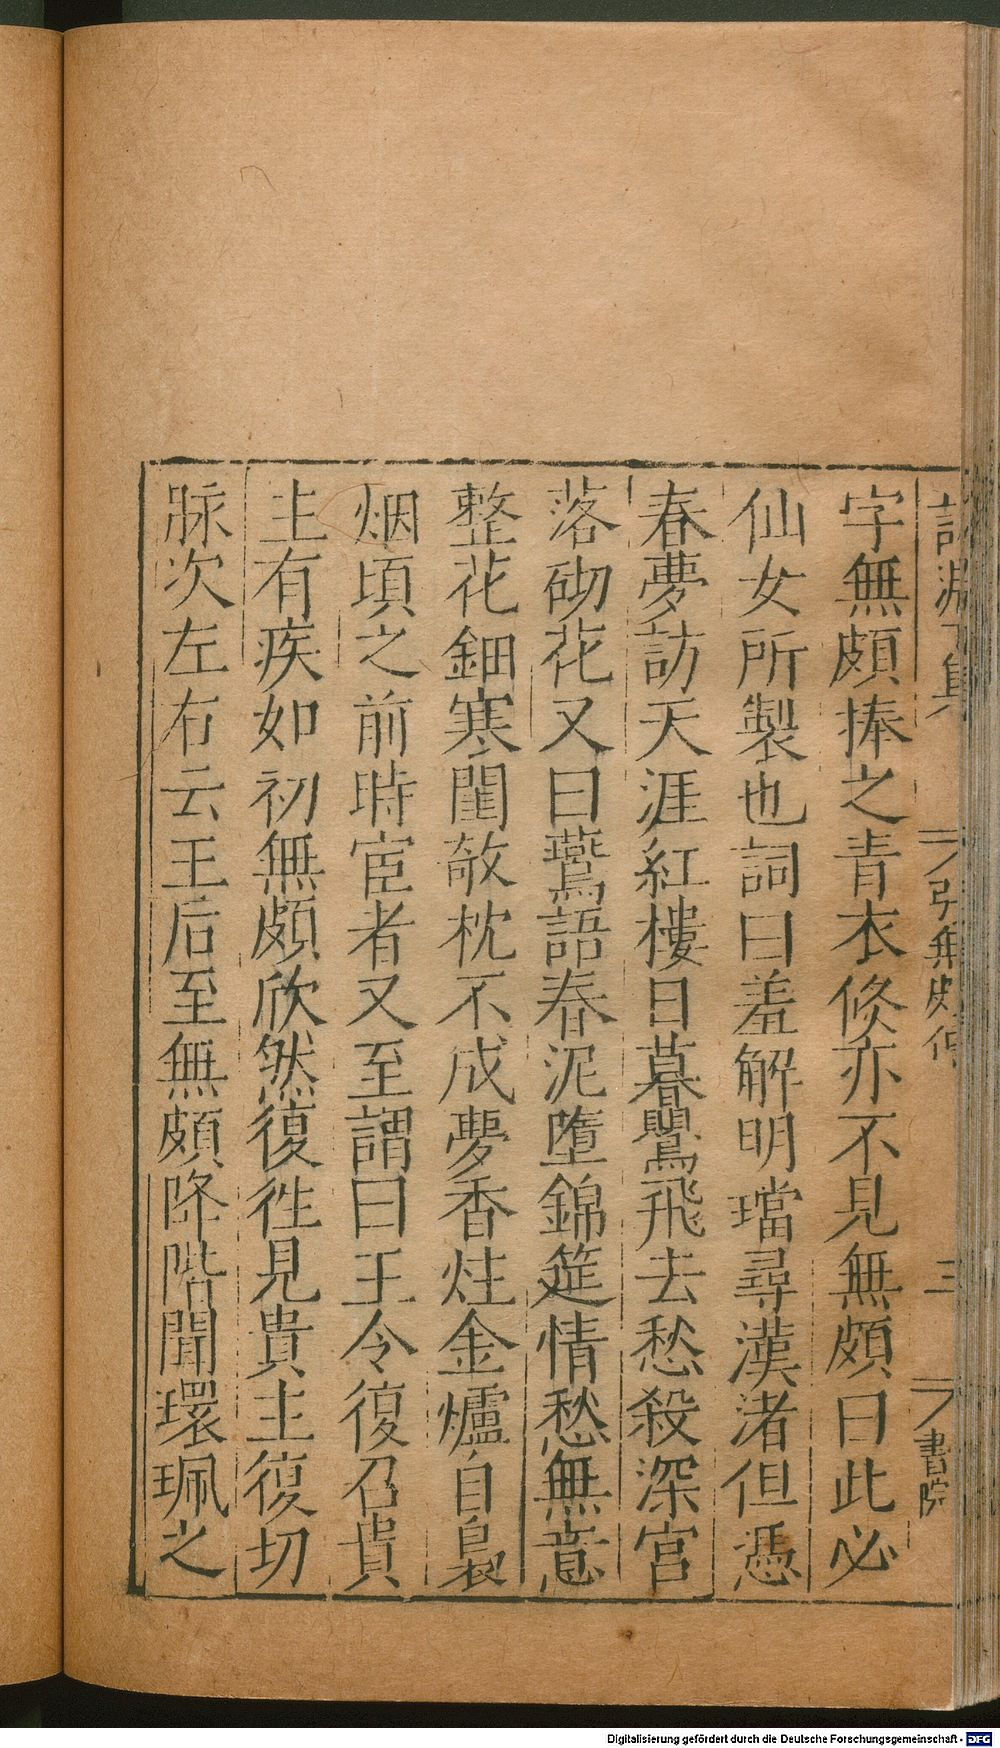 字無頗捧之青衣倐亦不見無頗曰此必
仙女所製也詞曰羞解明璫尋漢渚但憑
春夢訪天涯紅樓日暮鸎飛去愁殺深宫
落砌花又曰鷰語春泥墮錦筵情愁無意
整花鈿寒閨欹枕不成夢香炷金爐自裊
烟頃之前時宦者又至謂曰王令復召貴
主有疾如初無頗欣然復徃見貴主復切
脉次左右云王后至無頗降階聞環珮之
三
書院
Digitalisierung gefördert durch die Deutsche Forschungsgemeinschaft - DFG